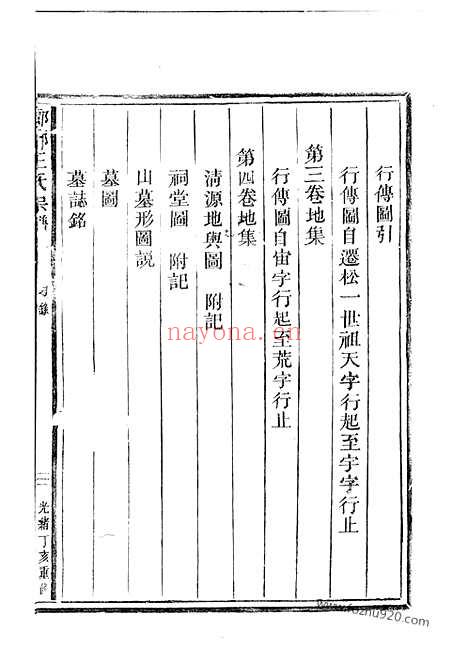 行傳圖引
行傳圖自遷松一世祖天字行起至宇字行止
第三卷地集
行傳圖自宙字行起至荒字行止
第四卷地集
清源地輿圖 附記
祠堂圖 附記
山墓形圖説
墓圖
墓誌銘
王氏宗譜
目錄
二
光緒丁亥重修
nayona.cn
www.fozhu920.com